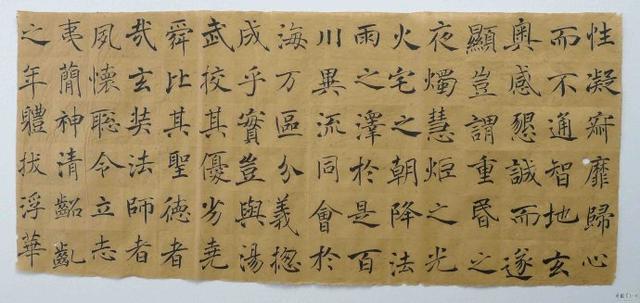 性凝寂靡歸心
而不通智地玄
奧感懇誠而遂
顯豈謂重昬之
夜燭慧炬之光
火宅之朝降法
雨之澤於是百
川異流同會於
海万區分義揔
成乎實豈與湯
武挍其優劣堯
舜比其聖德者
哉玄奘法師者
夙懷聡令立志
夷簡神清齠齔
之年體拔浮華